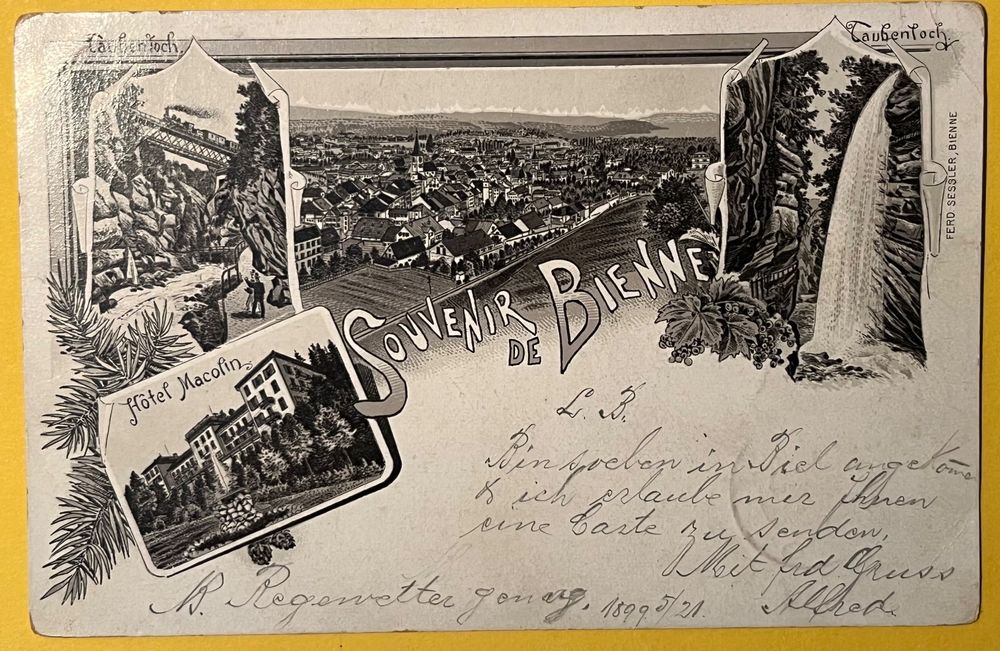 Taubenloch.
Taubenloch.
FERD. SESSLER, BIENNE
SOUVENIR DE BIENNE
Hôtel Macolin
L. B.
Bin soeben in Biel angekome
& ich erlaube mir Ihnen
eine Carte zu senden.
Mit frd. Gruss
Alfred.
NB. Regewetter genug. 1899 5/21.